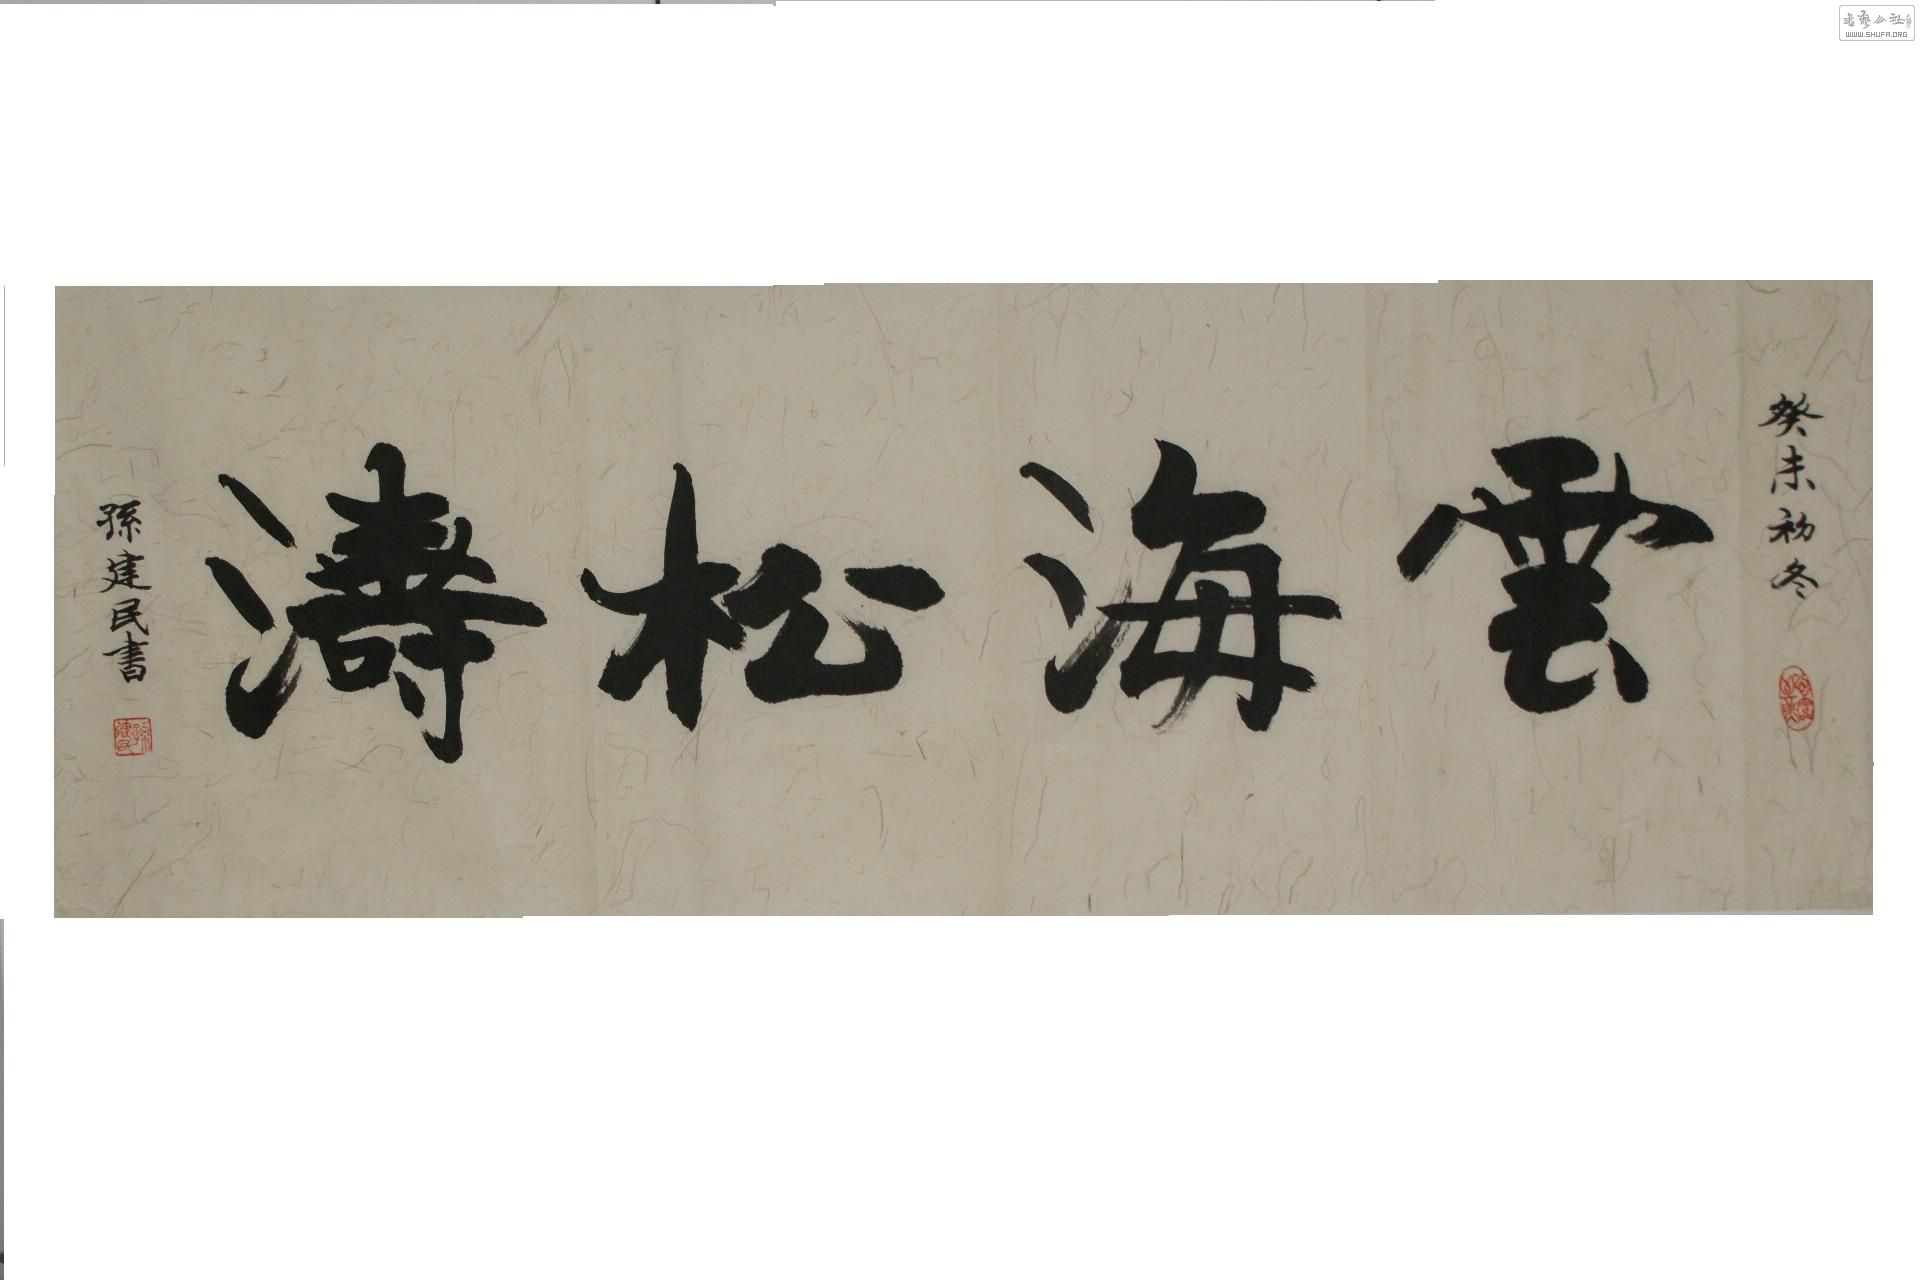 癸未初冬
雲海松濤
孫建民書
孫建民
書藝公社
WWW.SHUFA.ORG